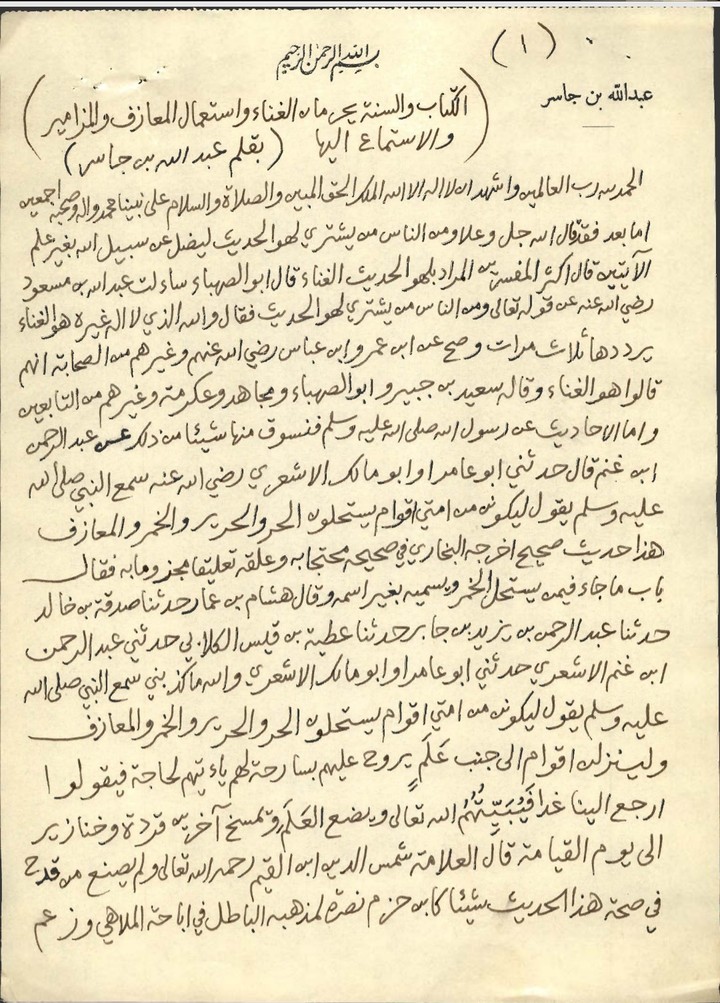 (١)
بسم الله الرحمن الرحيم
عبدالله بن جاسر
(الكتاب والسنة يحرمان الغناء واستعمال المعازف والمزامير
والاستماع اليها (بقلم عبد الله بن جاسر)
الحمد لله رب العالمين واشهد ان لا اله الا الله الملك الحق المبين والصلاة والسلام على نبينا محمد واله وصحبه اجمعين
اما بعد فقد قال الله جل وعلا ومن الناس من يشتري لهو الحديث ليضل عن سبيل الله بغير علم
الآيتين قال اكثر المفسرين المراد بلهو الحديث الغناء قال ابو الصهباء ساءلت عبد الله بن مسعود
رضي الله عنه عن قوله تعالى ومن الناس من يشتري لهو الحديث فقال والله الذي لا اله غيره هو الغناء
يرددها ثلاث مرات وصح عن ابن عمر وابن عباس رضي الله عنهم وغيرهم من الصحابة انهم
قالوا هو الغناء وقاله سعيد بن جبير وابو الصهباء ومجاهد وعكرمة وغيرهم من التابعين
واما الاحاديث عن رسول الله صلى الله عليه وسلم فنسوق منها شيئا من ذلك عن عبد الرحمن
ابن غنم قال حدثني ابو عامر او ابو مالك الاشعري رضي الله عنه سمع النبي صلى الله
عليه وسلم يقول ليكونن من امتي اقوام يستحلون الحر والحرير والخمر والمعازف
هذا حديث صحيح اخرجه البخاري في صحيحه محتجا به وعلقه تعليقا مجزوما به فقال
باب ما جاء فيمن يستحل الخمر ويسميه بغير اسمه وقال هشام بن عمار حدثنا صدقة بن خالد
حدثنا عبد الرحمن بن يزيد بن جابر حدثنا عطية بن قيس الكلابي حدثني عبد الرحمن
ابن غنم الاشعري حدثني ابو عامر او ابو مالك الاشعري والله ما كذبني سمع النبي صلى الله
عليه وسلم يقول ليكونن من امتي اقوام يستحلون الحر والحرير والخمر والمعازف
ولينزلن اقوام الى جنب عَلَمٍ يروح عليهم بسارحة لهم ياءتيهم لحاجة فيقولوا
ارجع الينا غدا فَيُبَيِّتُهُمُ الله تعالى ويضع العَلَمَ ويمسخ آخرين قردة وخنازير
الى يوم القيامة قال العلامة شمس الدين ابن القيم رحمه الله تعالى ولم يصنع من قدح
في صحة هذا الحديث شيئا كابن حزم نصرة لمذهبه الباطل في اباحة الملاهي وزعم